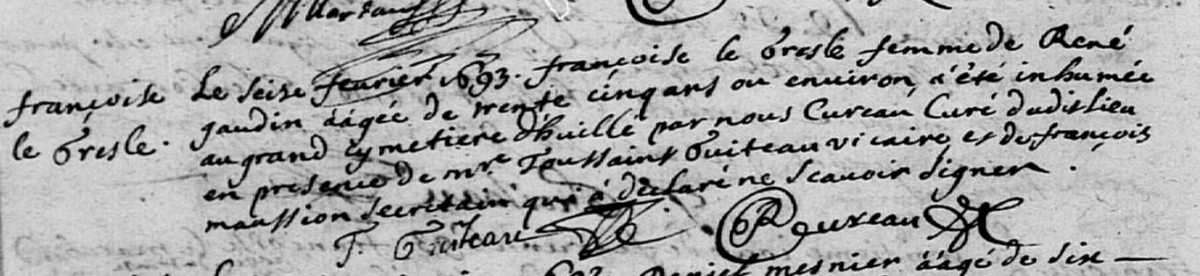 françoise
le Gresle.
Le seise fevrier 1693. françoise le Gresle femme de René
gaudin aâgée de trente cinq ans ou environ, a'été inhumée
au grand cymetiere d'huillé par nous Cureau Curé dudit lieu
en presence de mre Toussaint Guiteau vicaire et de françois
maussion secretain qui a declaré ne scavoir signer.
T. Guiteau
Cureau
mesnier aâgé de six